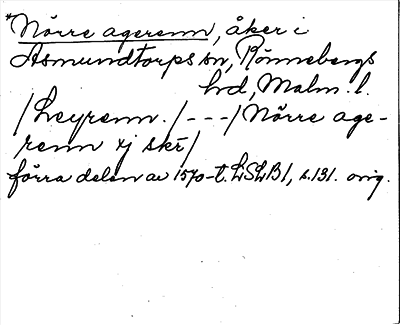 *Nörre agerenn, åker i
Asmundtorps sn, Rönnebergs
hd, Malm. l.
/Leyrenn./---/Nörre age-
renn xj skr/
förra delen av 1570-t. LSLB1, s.131. orig.